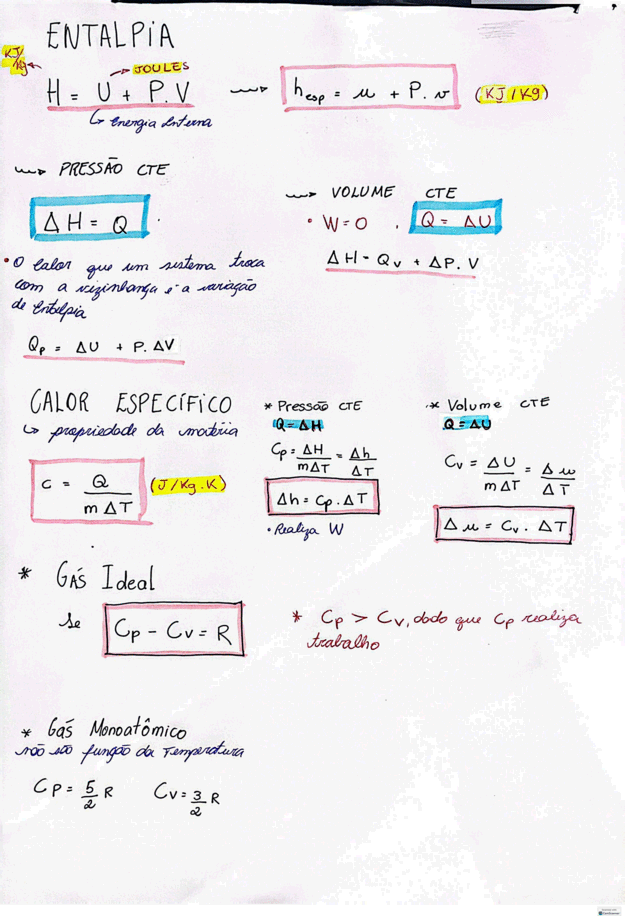 ENTALPIA
KJ/Kg
JOULES
H = U + P.V
↳ Energia Interna
h esp = u + P.v (KJ/Kg)
PRESSÃO CTE
ΔH = Q
• O calor que um sistema troca
com a vizinhança é a variação
de Entalpia
Qp = ΔU + P.ΔV
VOLUME CTE
• W=0 , Q = ΔU
ΔH = Qv + ΔP.V
CALOR ESPECÍFICO
↳ propriedade da matéria
c = Q / mΔT (J/Kg.K)
* Pressão CTE
Q=ΔH
Cp = ΔH / mΔT = Δh / ΔT
Δh = Cp.ΔT
• Realiza W
* Volume CTE
Q=ΔU
Cv = ΔU / mΔT = Δu / ΔT
Δu = Cv. ΔT
* GÁS Ideal
se Cp - Cv = R
* Cp > Cv, dado que Cp realiza
trabalho
* Gás Monoatômico
não são função da Temperatura
Cp = 5/2 R Cv = 3/2 R